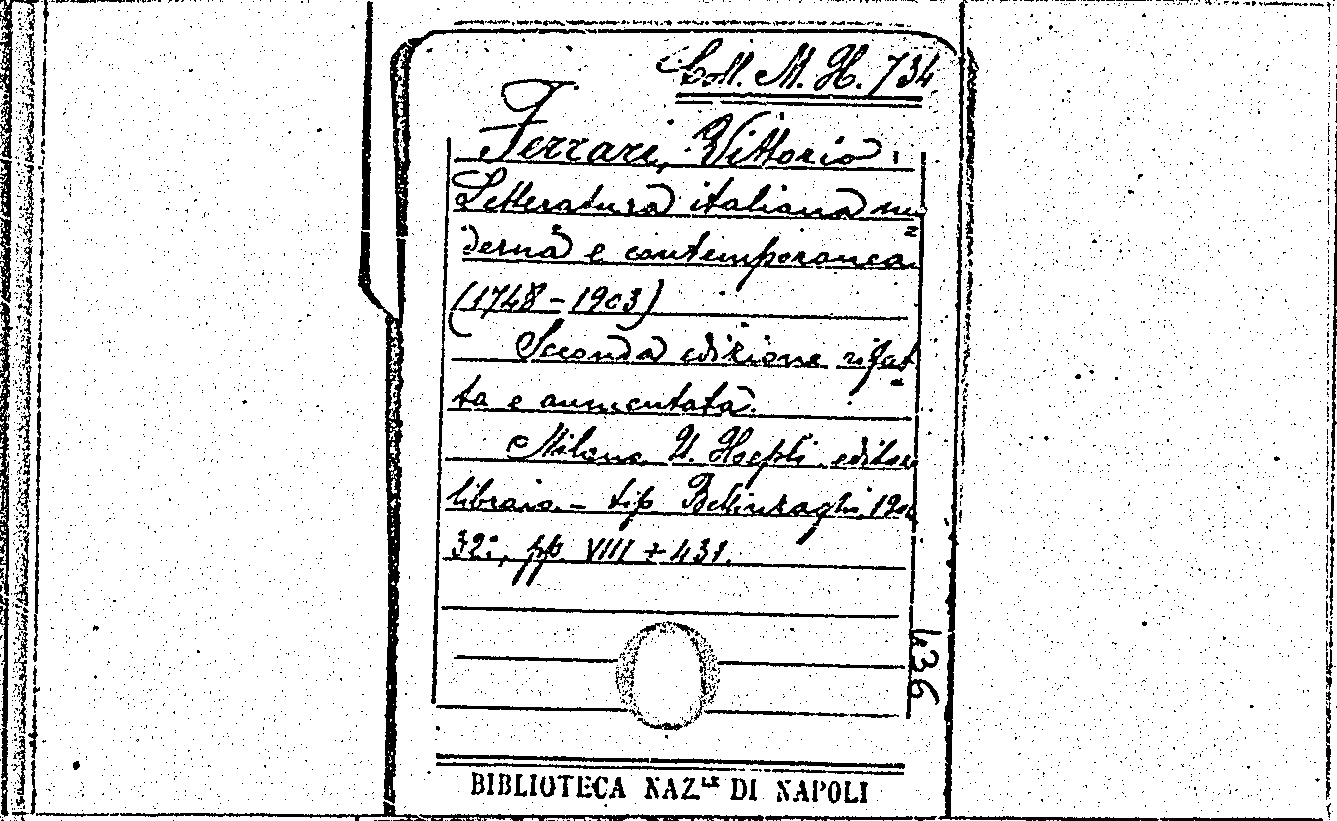 Coll. M. H. 734
Ferrari, Vittorio.
Letteratura italiana mo
derna e contemporanea
(1748-1903)
Seconda edizione rifat
ta e aumentata.
Milano U. Hoepli editore
libraio. - tip Bellinzaghi,
32:, pp VIII + 431.
436
BIBLIOTECA NAZLE DI NAPOLI